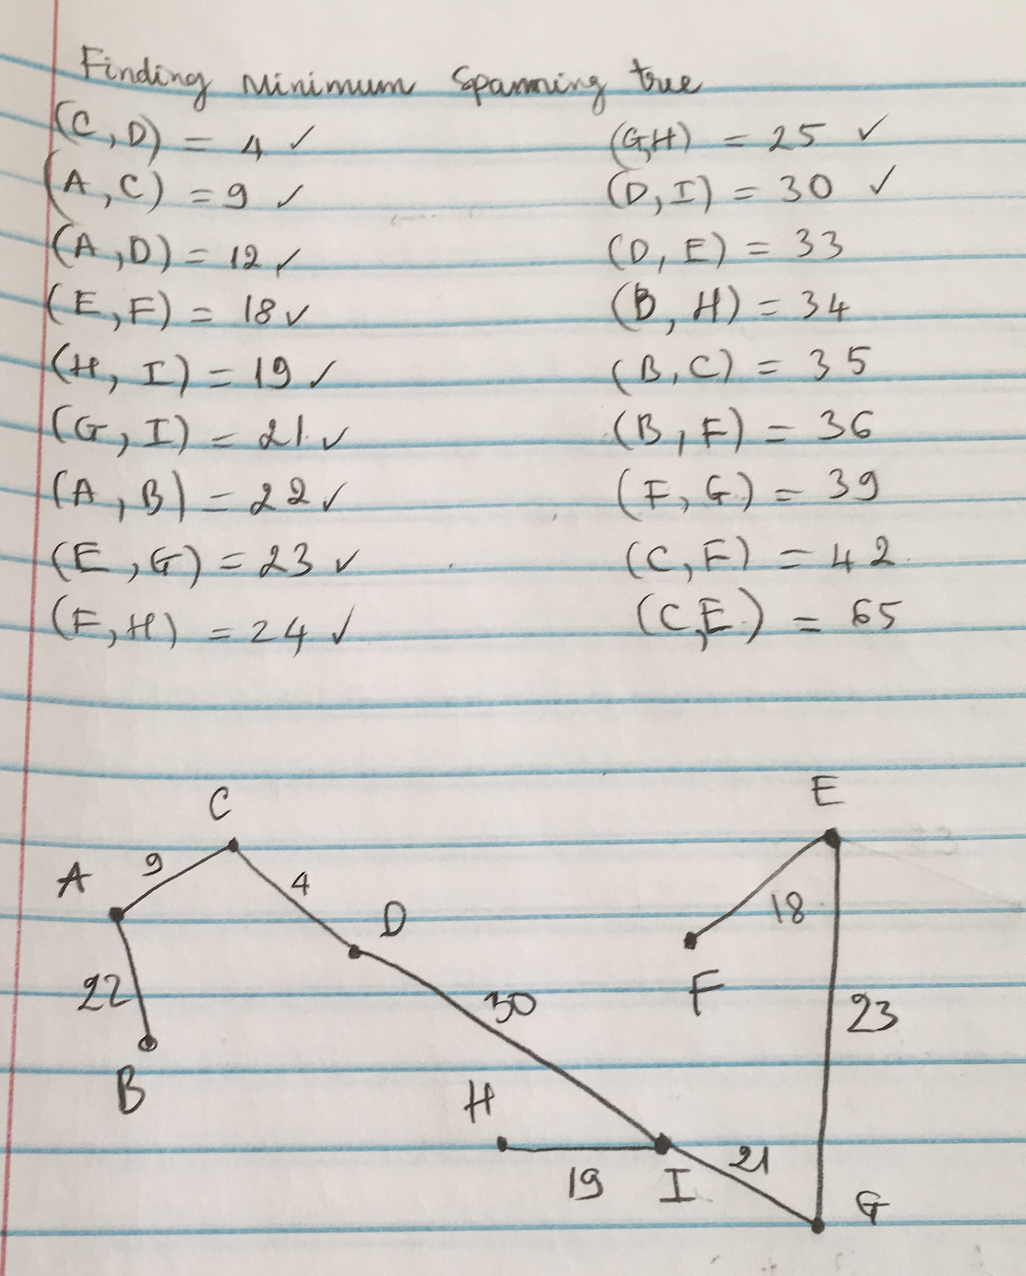 Finding Minimum Spanning true
(C,D) = 4 ✓
(A,C) = 9 ✓
(A,D) = 12 ✓
(E,F) = 18 ✓
(H,I) = 19 ✓
(G,I) = 21 ✓
(A,B) = 22 ✓
(E,G) = 23 ✓
(F,H) = 24 ✓
(G,H) = 25 ✓
(D,I) = 30 ✓
(D,E) = 33
(B,H) = 34
(B,C) = 35
(B,F) = 36
(F,G) = 39
(C,F) = 42
(C,E) = 65
E
C
9
A
4
D
18
F
22
30
23
B
H
21
19
I
G